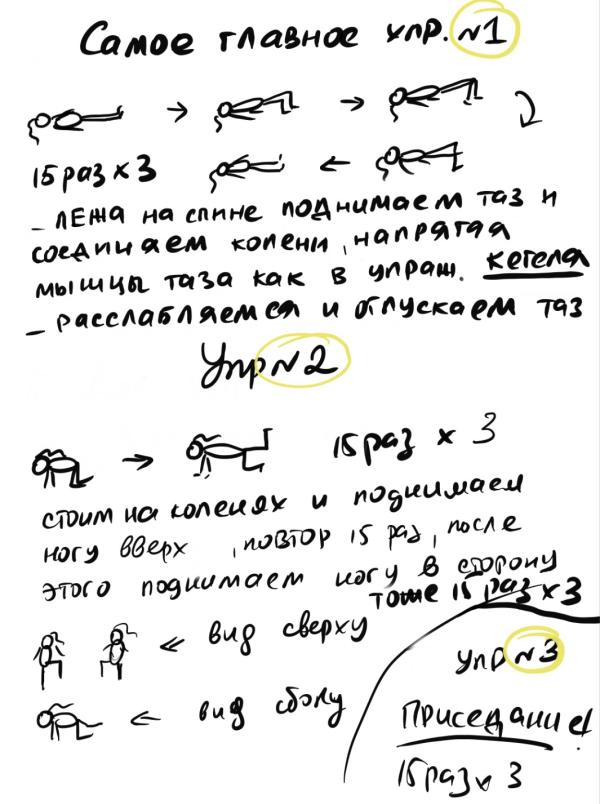 Самое главное упр. №1
15 раз х 3
– лежа на спине поднимаем таз и
соединяем колени, напрягая
мышцы таза как в упраж. Кегеля
– расслабляемся и отпускаем таз
Упр №2
15 раз х 3
стоим на коленях и поднимаем
ногу вверх, повтор 15 раз, после
этого поднимаем ногу в сторону
тоже 15 раз х 3
вид сверху
вид сбоку
упр №3
Приседание!
15 раз х 3